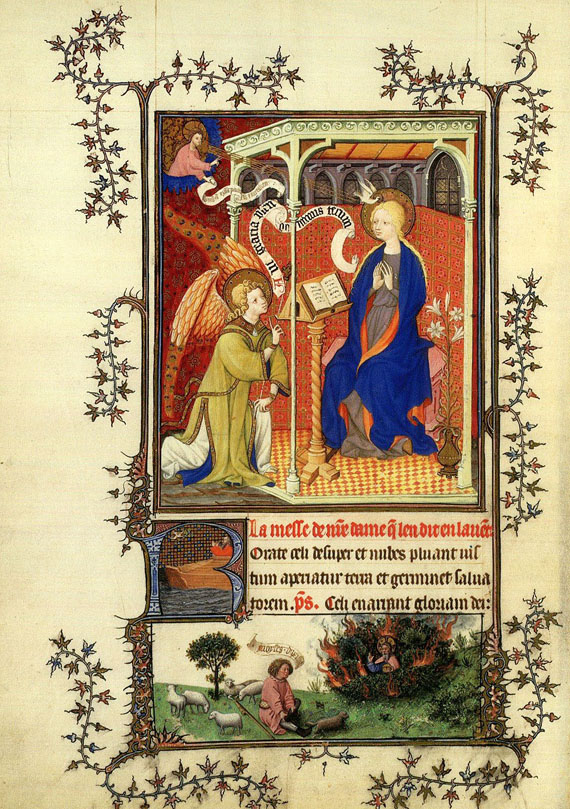 gratia
dominus tecum
La messe de nr̄e dame q̄ len dit en lauēt
ROrate celi desuper et nubes pluant ius
tum aperiatur terra et germinet salua
torem. ps. Celi enarrant gloriam dei: